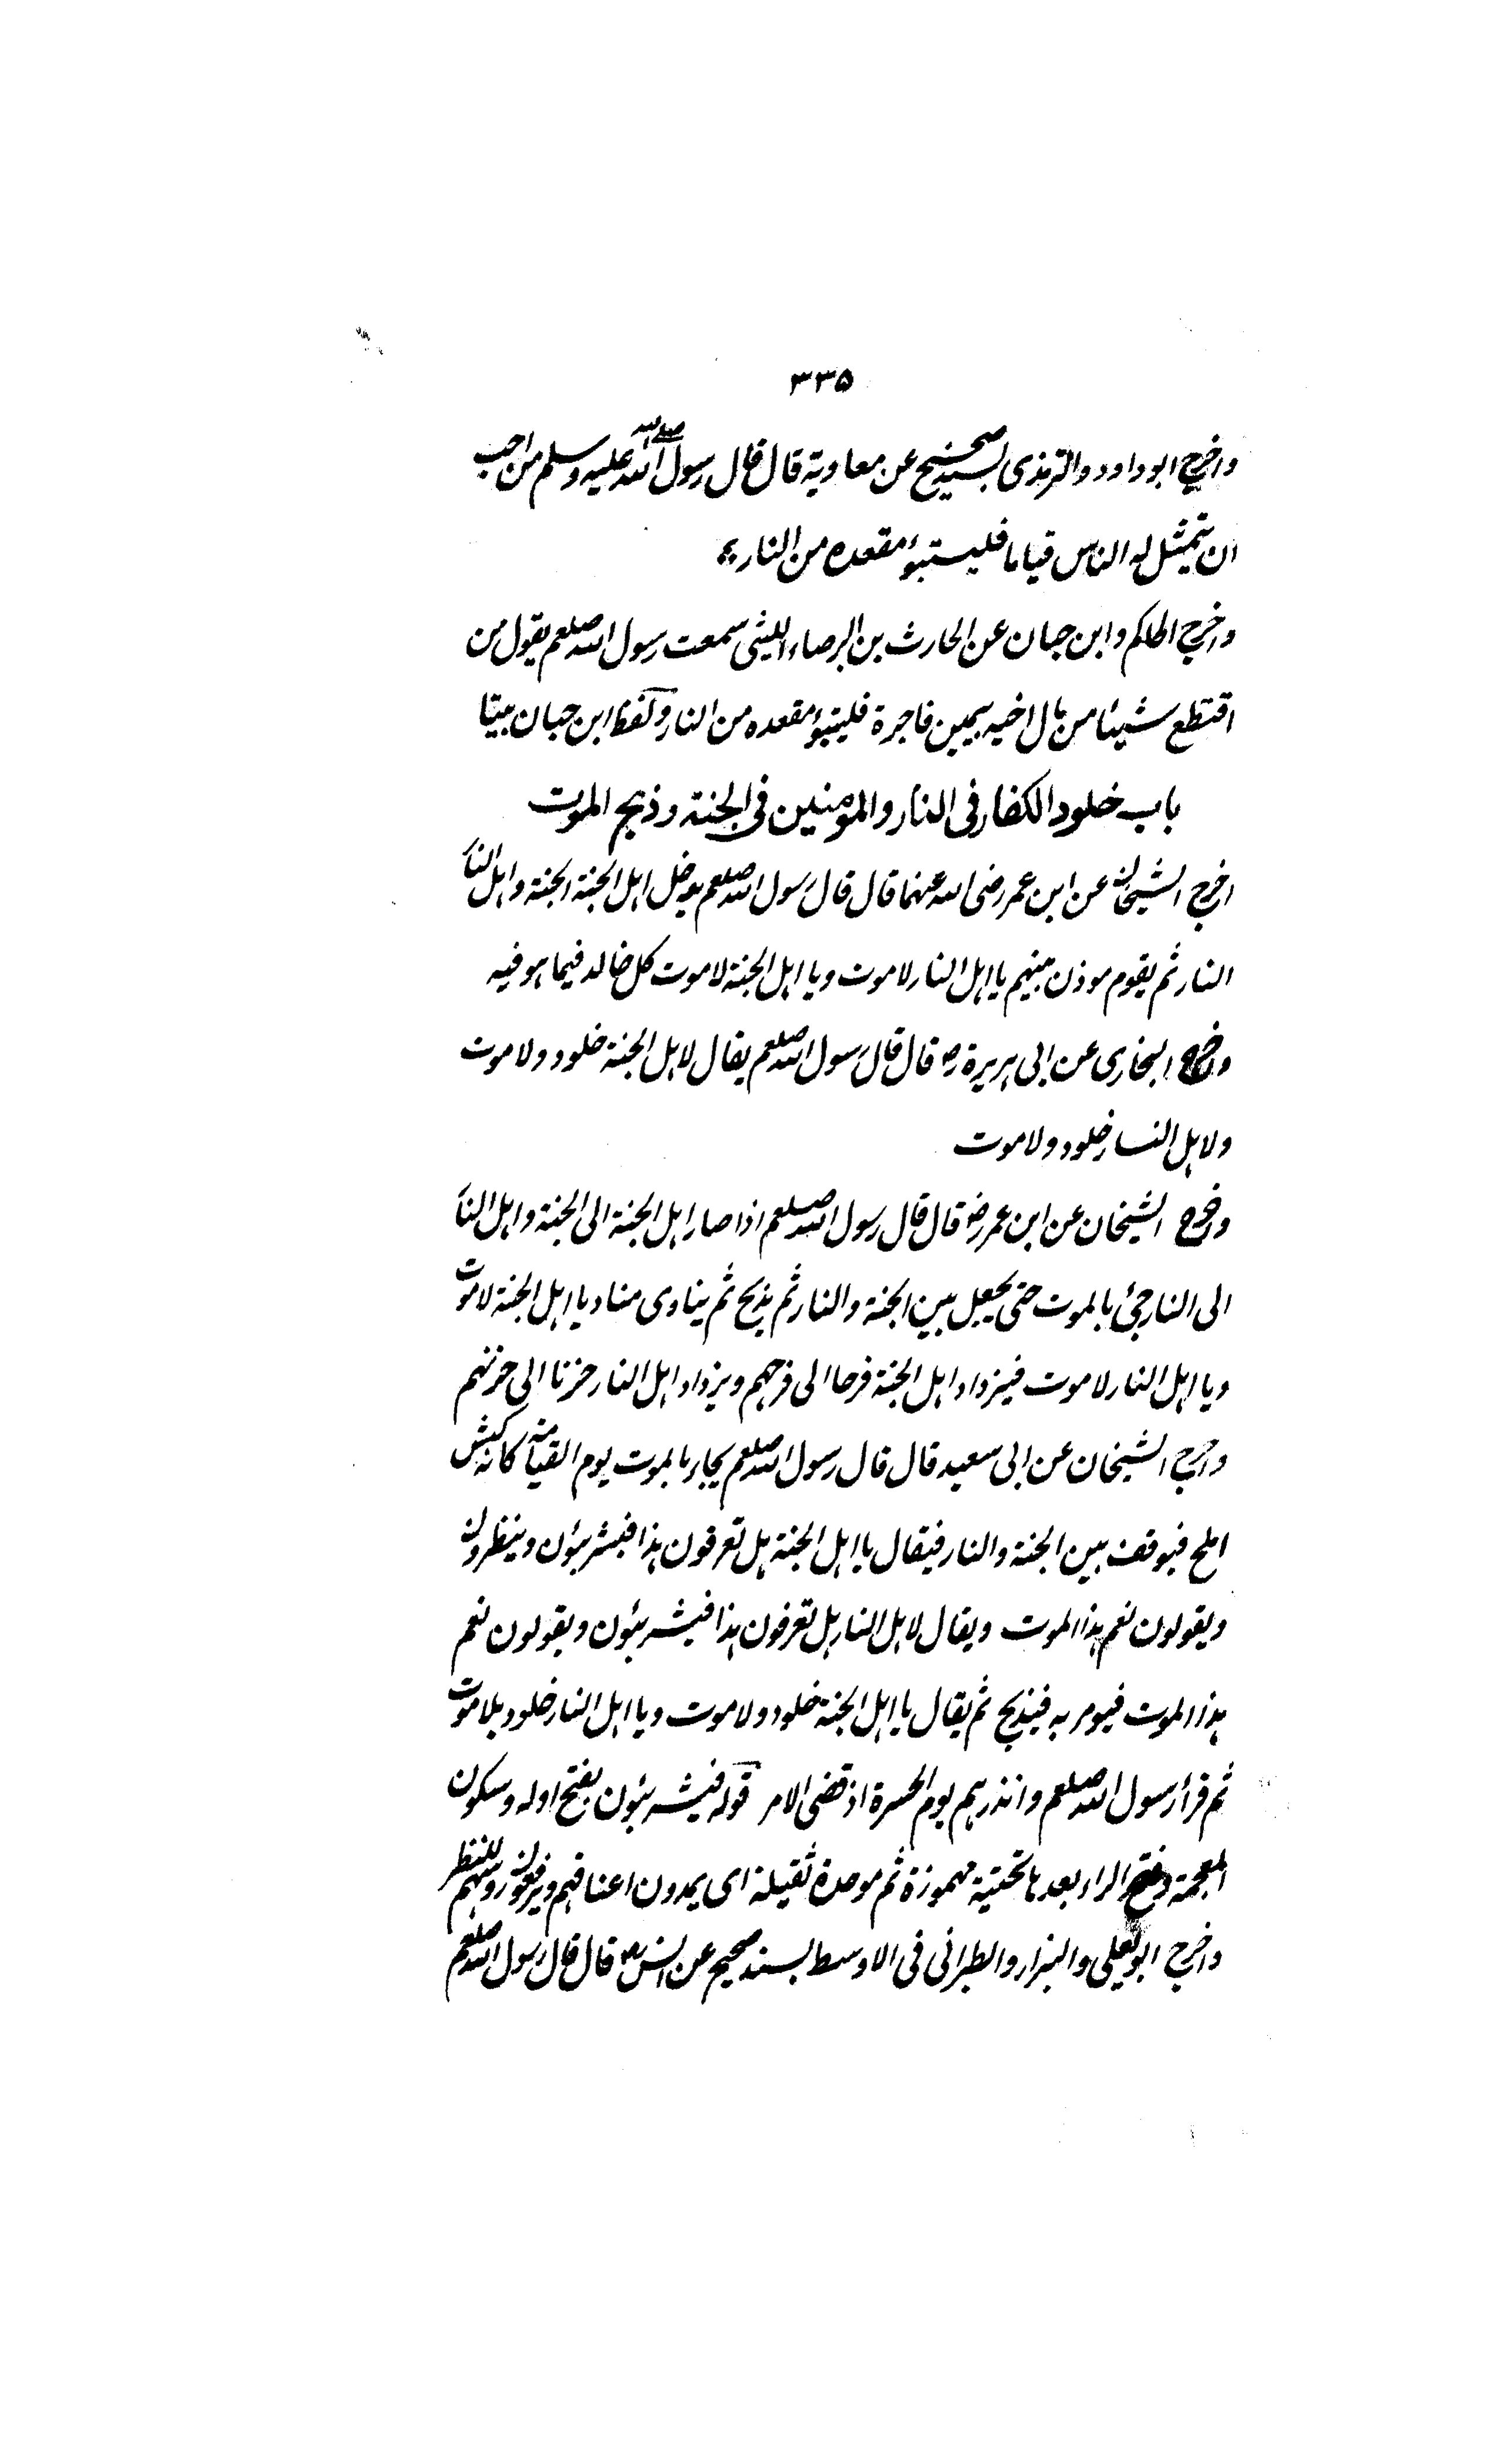 ۳۳۵
واخرج ابو داود والترمذی بسند صحیح عن معاویة قال قال رسول الله صلی الله علیه وسلم من احب
ان یتمثل له الناس قیاما فلیستبوٴ مقعده من النار
واخرج الحاکم وابن حبان عن الحارث بن البرصاء اللیثی سمعت رسول الله صلعم یقول من
اقتطع شیئا من مال اخیه بیمین فاجرة فلیتبوٴ مقعده من النار ولفظ ابن حبان بیتا
باب خلود الکفار فی النار والمومنین فی الجنة وذبح الموت
اخرج الشیخان عن ابن عمر رضی الله عنهما قال قال رسول الله صلعم یدخل اهل الجنة الجنة واهل النار
النار ثم یقوم موذن بینهم یا اهل النار لا موت ویا اهل الجنة لا موت کل خالد فیما هو فیه
واخرج البخاری عن ابی هریرة رض قال قال رسول الله صلعم یقال لاهل الجنة خلود ولا موت
ولاهل النار خلود ولا موت
واخرج الشیخان عن ابن عمر رض قال قال رسول الله صلعم اذا صار اهل الجنة الی الجنة واهل النار
الی النار جیٴ بالموت حتی یجعل بین الجنة والنار ثم یذبح ثم ینادی مناد یا اهل الجنة لا موت
ویا اهل النار لا موت فیزداد اهل الجنة فرحا الی فرحهم ویزداد اهل النار حزنا الی حزنهم
واخرج الشیخان عن ابی سعید قال قال رسول الله صلعم یجاء بالموت یوم القیامة کانه کبش
املح فیوقف بین الجنة والنار فیقال یا اهل الجنة هل تعرفون هذا فیشرئبون وینظرون
ویقولون نعم هذا الموت ویقال لاهل النار هل تعرفون هذا فیشرئبون ویقولون نعم
هذا الموت فیومر به فیذبح ثم یقال یا اهل الجنة خلود ولا موت ویا اهل النار خلود بلا موت
ثم قرأ رسول الله صلعم وانذرهم یوم الحسرة اذ قضی الامر قوله فیشرئبون بفتح اوله وسکون
المعجمة وفتح الراء بعدها تحتیة مهموزة ثم موحدة ثقیلة ای یمدون اعناقهم ویرفعون روسهم للنظر
واخرج ابو یعلی والبزار والطبرانی فی الاوسط بسند صحیح عن انس رض قال قال رسول الله صلعم